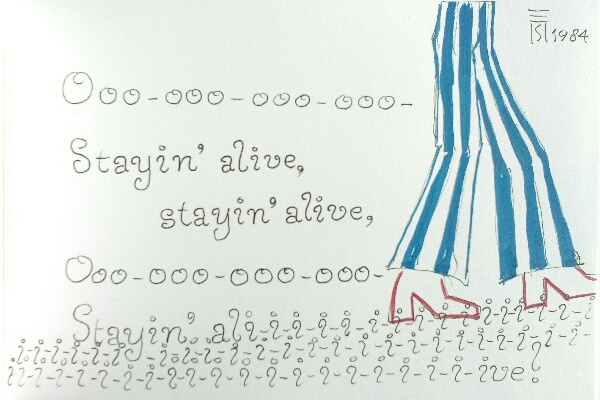 1984
Ooo-ooo-ooo-ooo-
Stayin' alive,
stayin' alive,
Ooo-ooo-ooo-ooo-
Stayin' ali-i-i-i-i-i-i-i-i-i-i-i-i-
i-i-i-i-i-i-i-i-i-i-i-i-i-i-i-i-i-i-i-i-i-i-
i-i-i-i-i-i-i-i-i-i-i-i-i-i-i-i-i-i-i-ive!